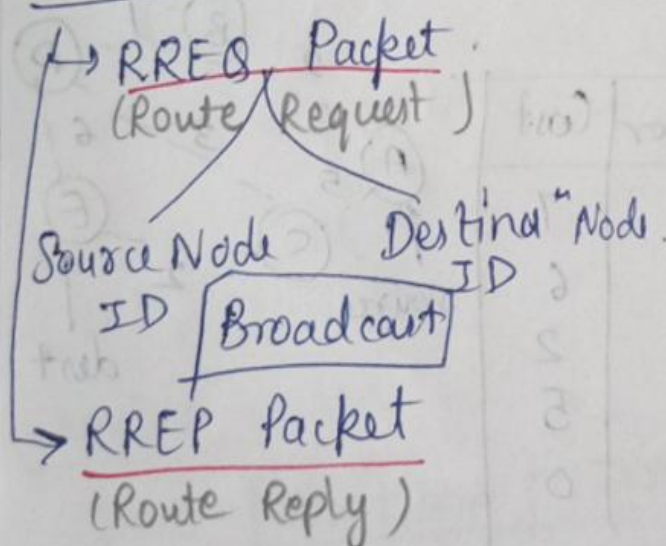 RREQ Packet.
(Route Request)
Source Node
ID
Destinaⁿ Node.
ID
Broadcast
RREP Packet
(Route Reply)